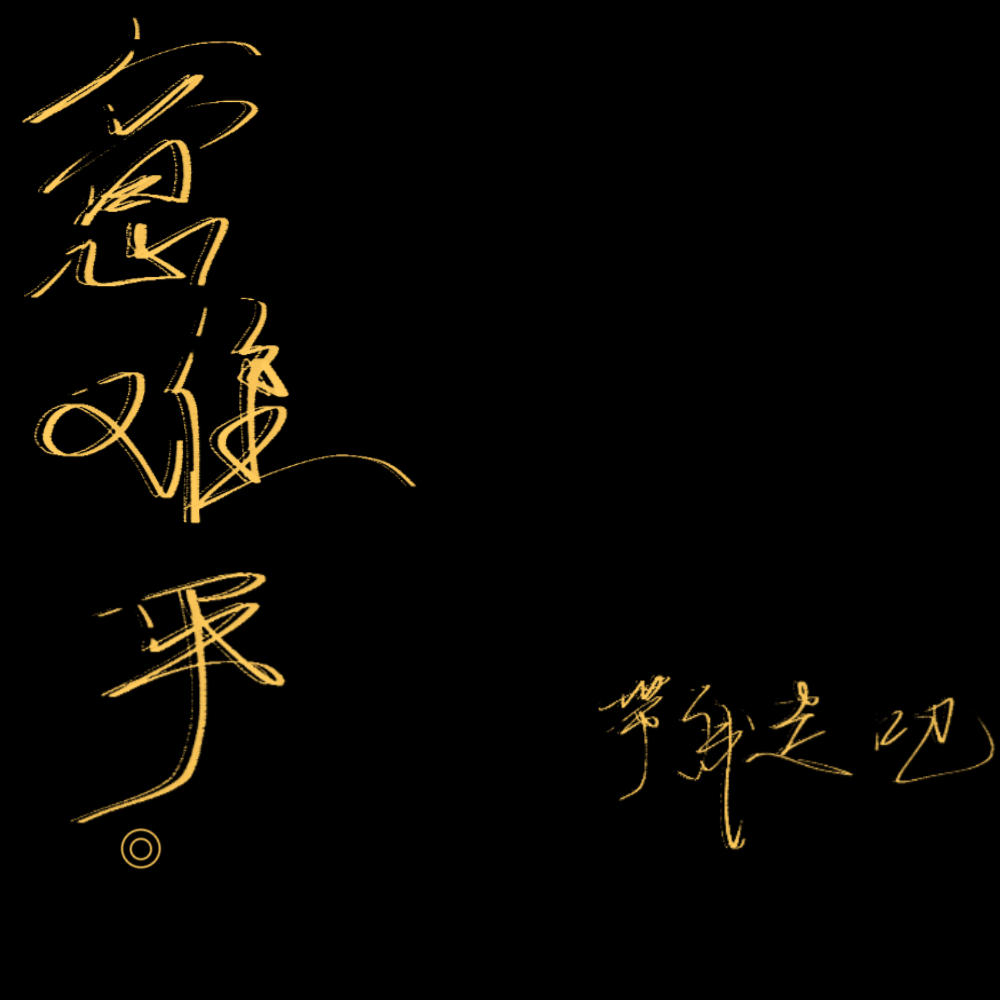 意难平
带我走吧